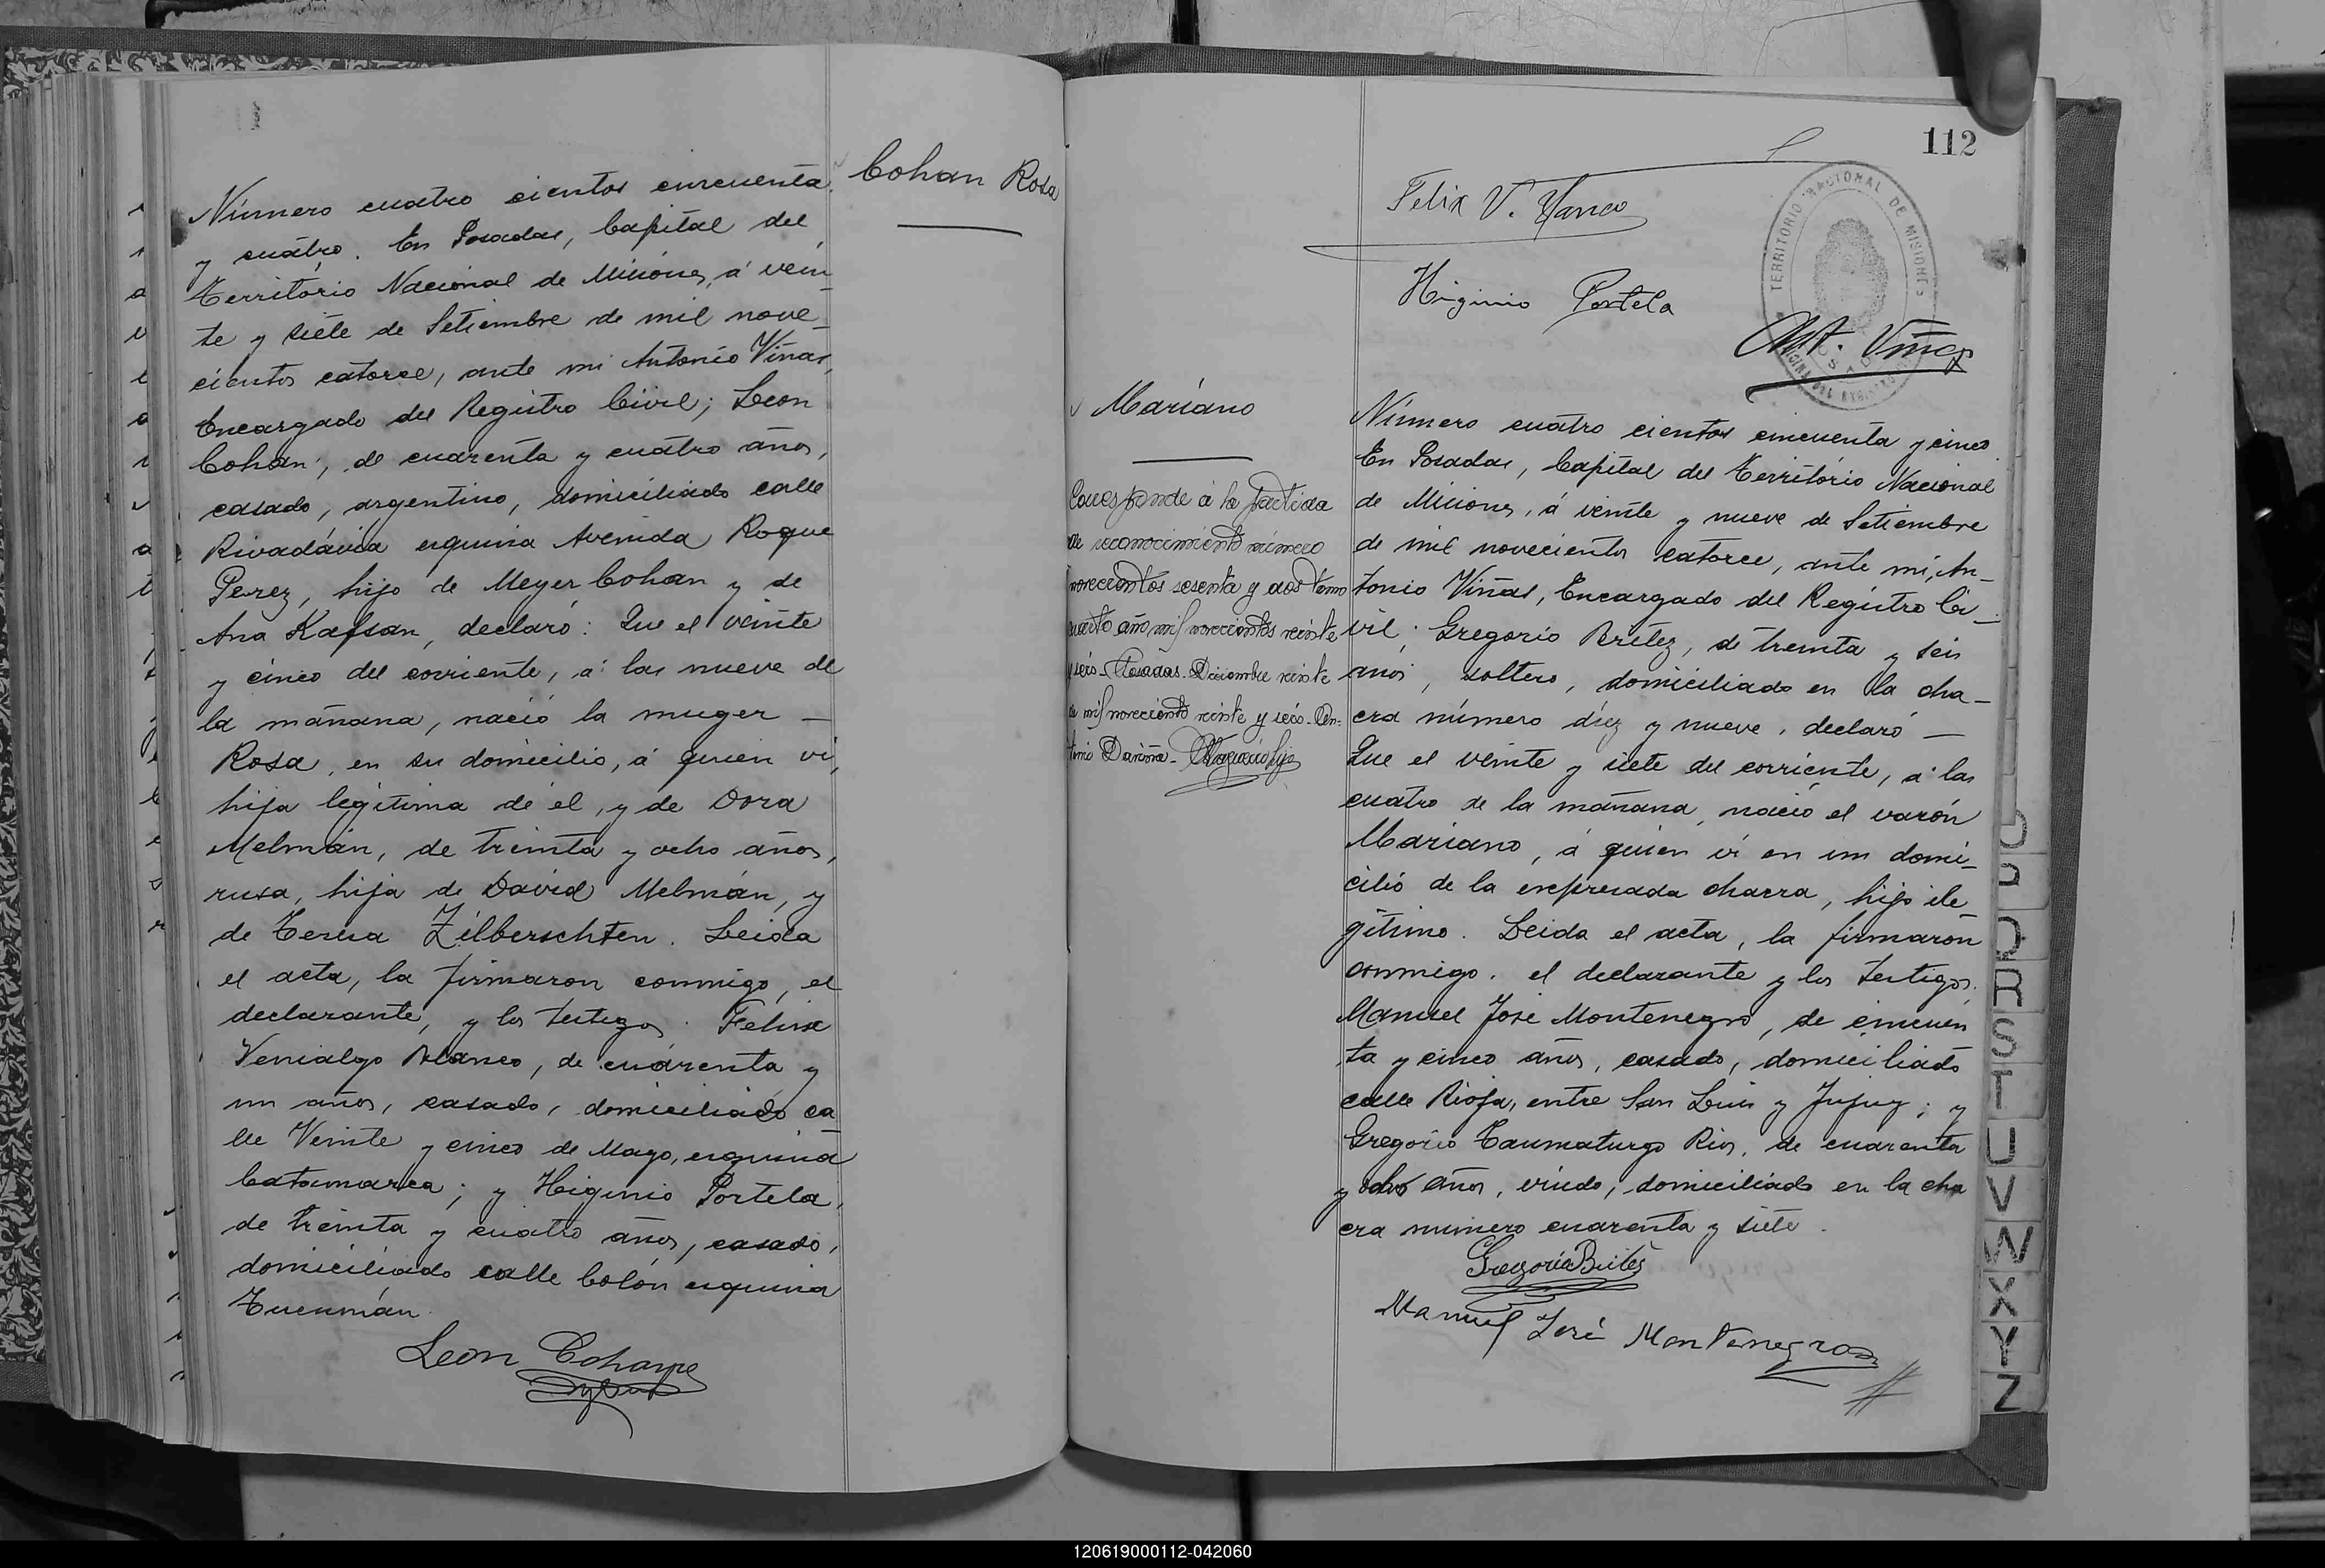 Número cuatro cientos cincuenta
y cuatro. En Posadas, Capital del
Territorio Nacional de Misiones, á vein
te y siete de Setiembre de mil nove_
cientos catorce, ante mi Antonio Viñas,
Encargado del Registro Civil; Leon
Cohan, de cuarenta y cuatro años,
casado, argentino, domiciliado calle
Rivadávia esquina Avenida Roque
Perez, hijo de Meyer Cohan y de
Ana Kafsan, declaró: Que el veinte
y cinco del corriente, á las nueve de
la mañana, nació la muger —
Rosa, en su domicilio, á quien vi,
hija legítima de él, y de Dora
Melmán, de treinta y ocho años,
rusa, hija de David Melmán, y
de Teresa Zilberschten. Leida
el acta, la firmaron conmigo, el
declarante, y los testigos. Felix
Venialgo Blanco, de cuarenta y
un años, casado, domiciliado ca
lle Veinte y cinco de Mayo, esquina
Catamarca; y Higinio Portela,
de treinta y cuatro años, casado,
domiciliado calle Colón esquina
Tucumán.
Leon Cohan
Cohan Rosa
112
Felix V. Blanco
Higinio Portela
TERRITORIO NACIONAL DE MISIONES
Ant. Viñas
Mariano
Corresponde á la partida
de reconocimiento número
novecientos sesenta y dos tomo
cuarto año mil novecientos veinte
y seis. Posadas. Diciembre veinte
de mil novecientos veinte y seis.
Número cuatro cientos cincuenta y cinco
En Posadas, Capital del Territorio Nacional
de Misiones, á veinte y nueve de Setiembre
de mil novecientos catorce, ante mi, An_
tonio Viñas, Encargado del Registro Ci_
vil; Gregorio Brítez, de treinta y seis
años, soltero, domiciliado en la cha_
cra número diez y nueve, declaró —
Que el veinte y siete del corriente, á las
cuatro de la mañana, nació el varón
Mariano, á quien vi en un domi_
cilio de la expresada chacra, hijo ile
gítimo. Leida el acta, la firmaron
conmigo, el declarante y los testigos.
Manuel José Montenegro, de cincuen
ta y cinco años, casado, domiciliado
calle Rioja, entre San Luis y Jujuy; y
Gregorio Taumaturgo Rios, de cuarenta
y ocho años, viudo, domiciliado en la cha
cra número cuarenta y siete.
Gregorio Brites
Manuel José Montenegro
P
Q
R
S
T
U
V
W
X
Y
Z
120619000112-042060